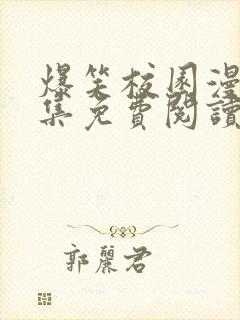 爆笑校園漫
集免費閱讀
郭麗君